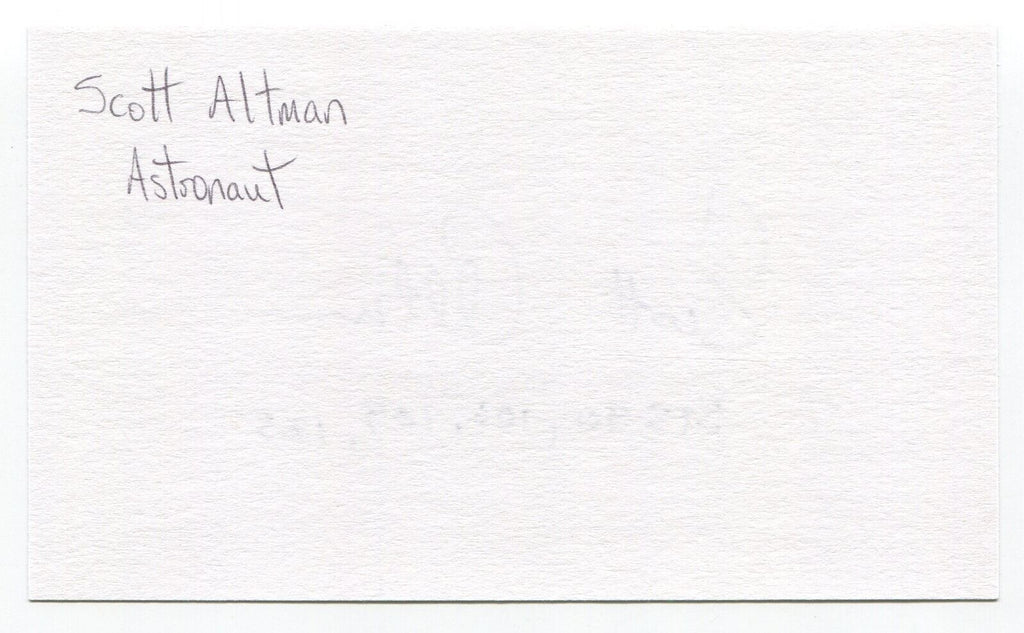 Scott Altman
Astronaut